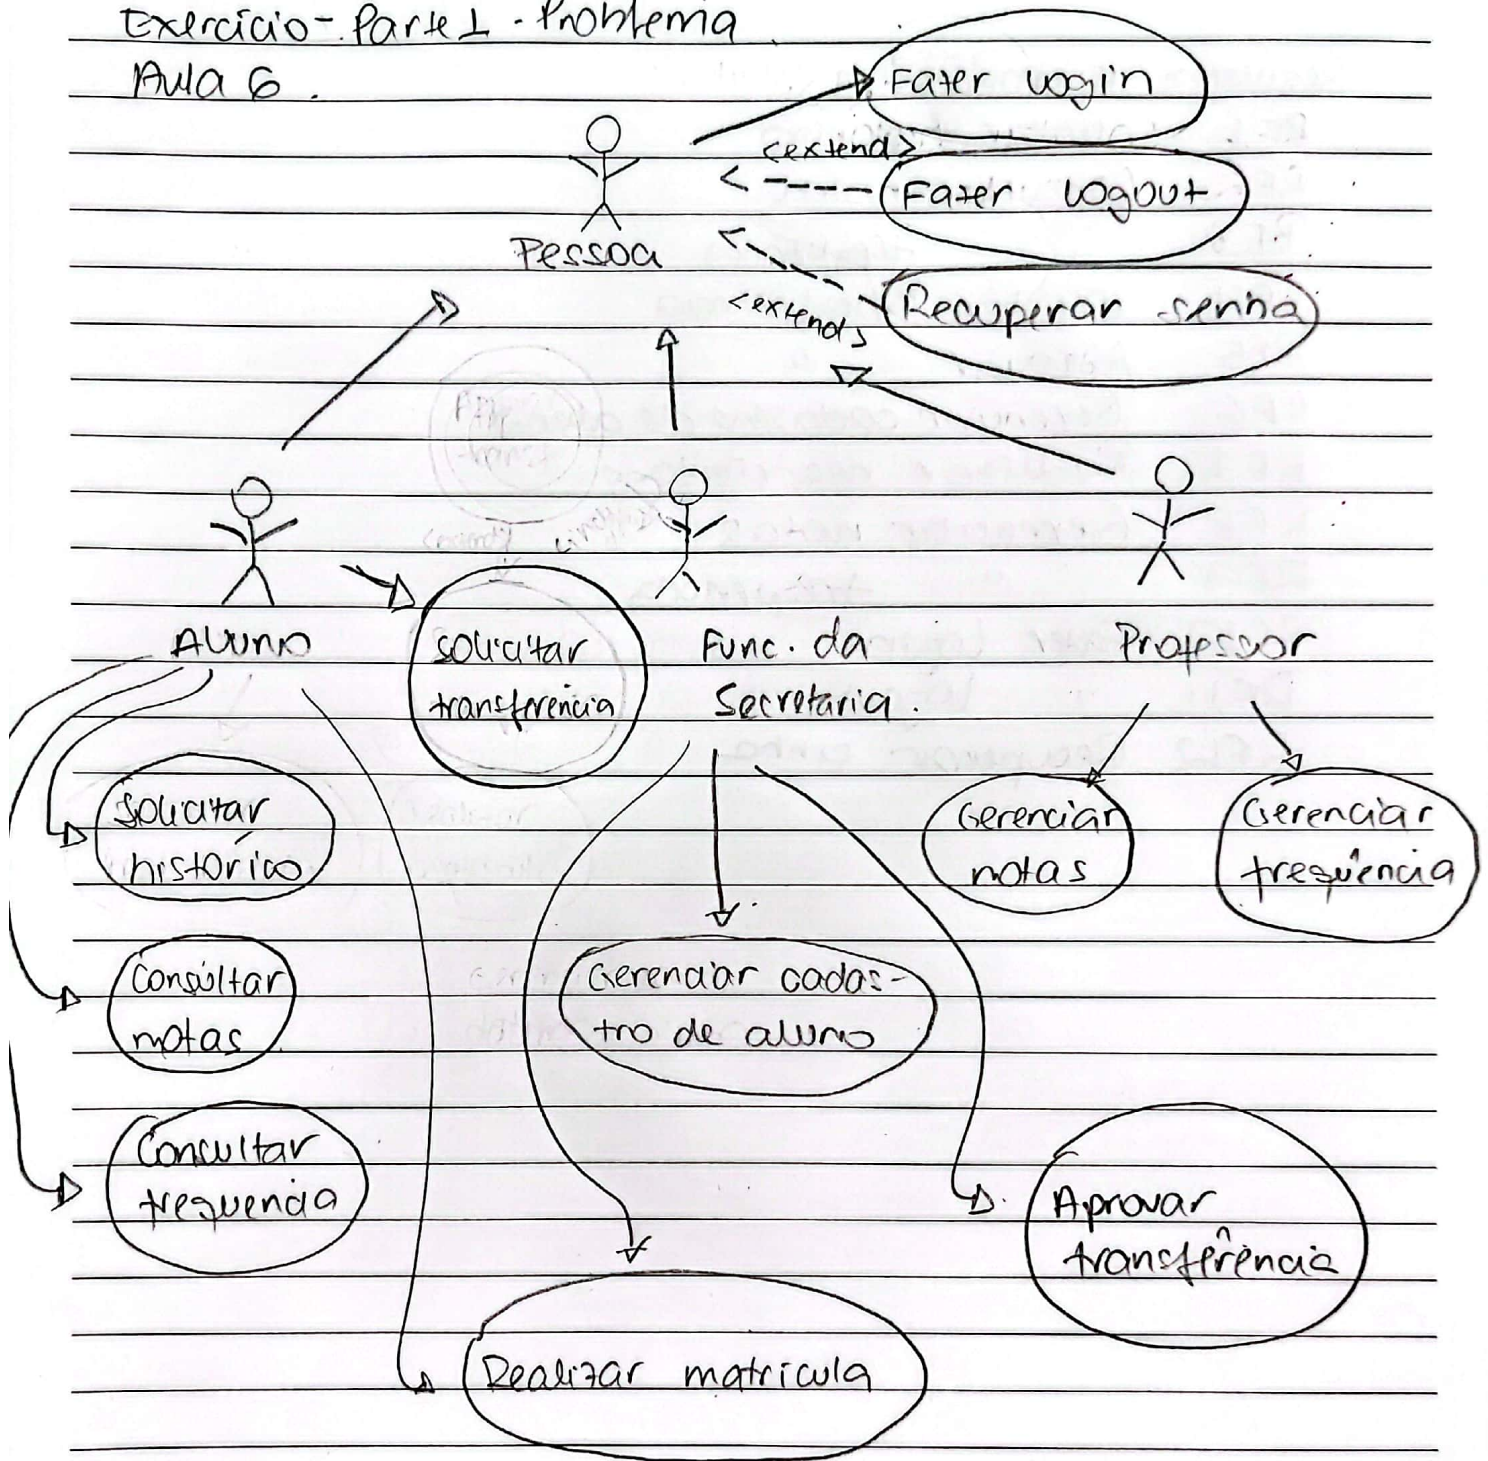 Exercício - Parte 1 - Problema
Aula 6.
Fazer login
<extend>
Fazer logout
Pessoa
<extend>
Recuperar senha
Aluno
solicitar
transferência
Func. da
Secretaria.
Professor
Solicitar
histórico
Gerenciar
notas
Gerenciar
frequência
Consultar
notas
Gerenciar cadas-
tro de aluno
Consultar
frequencia
Aprovar
transferência
Realizar matricula